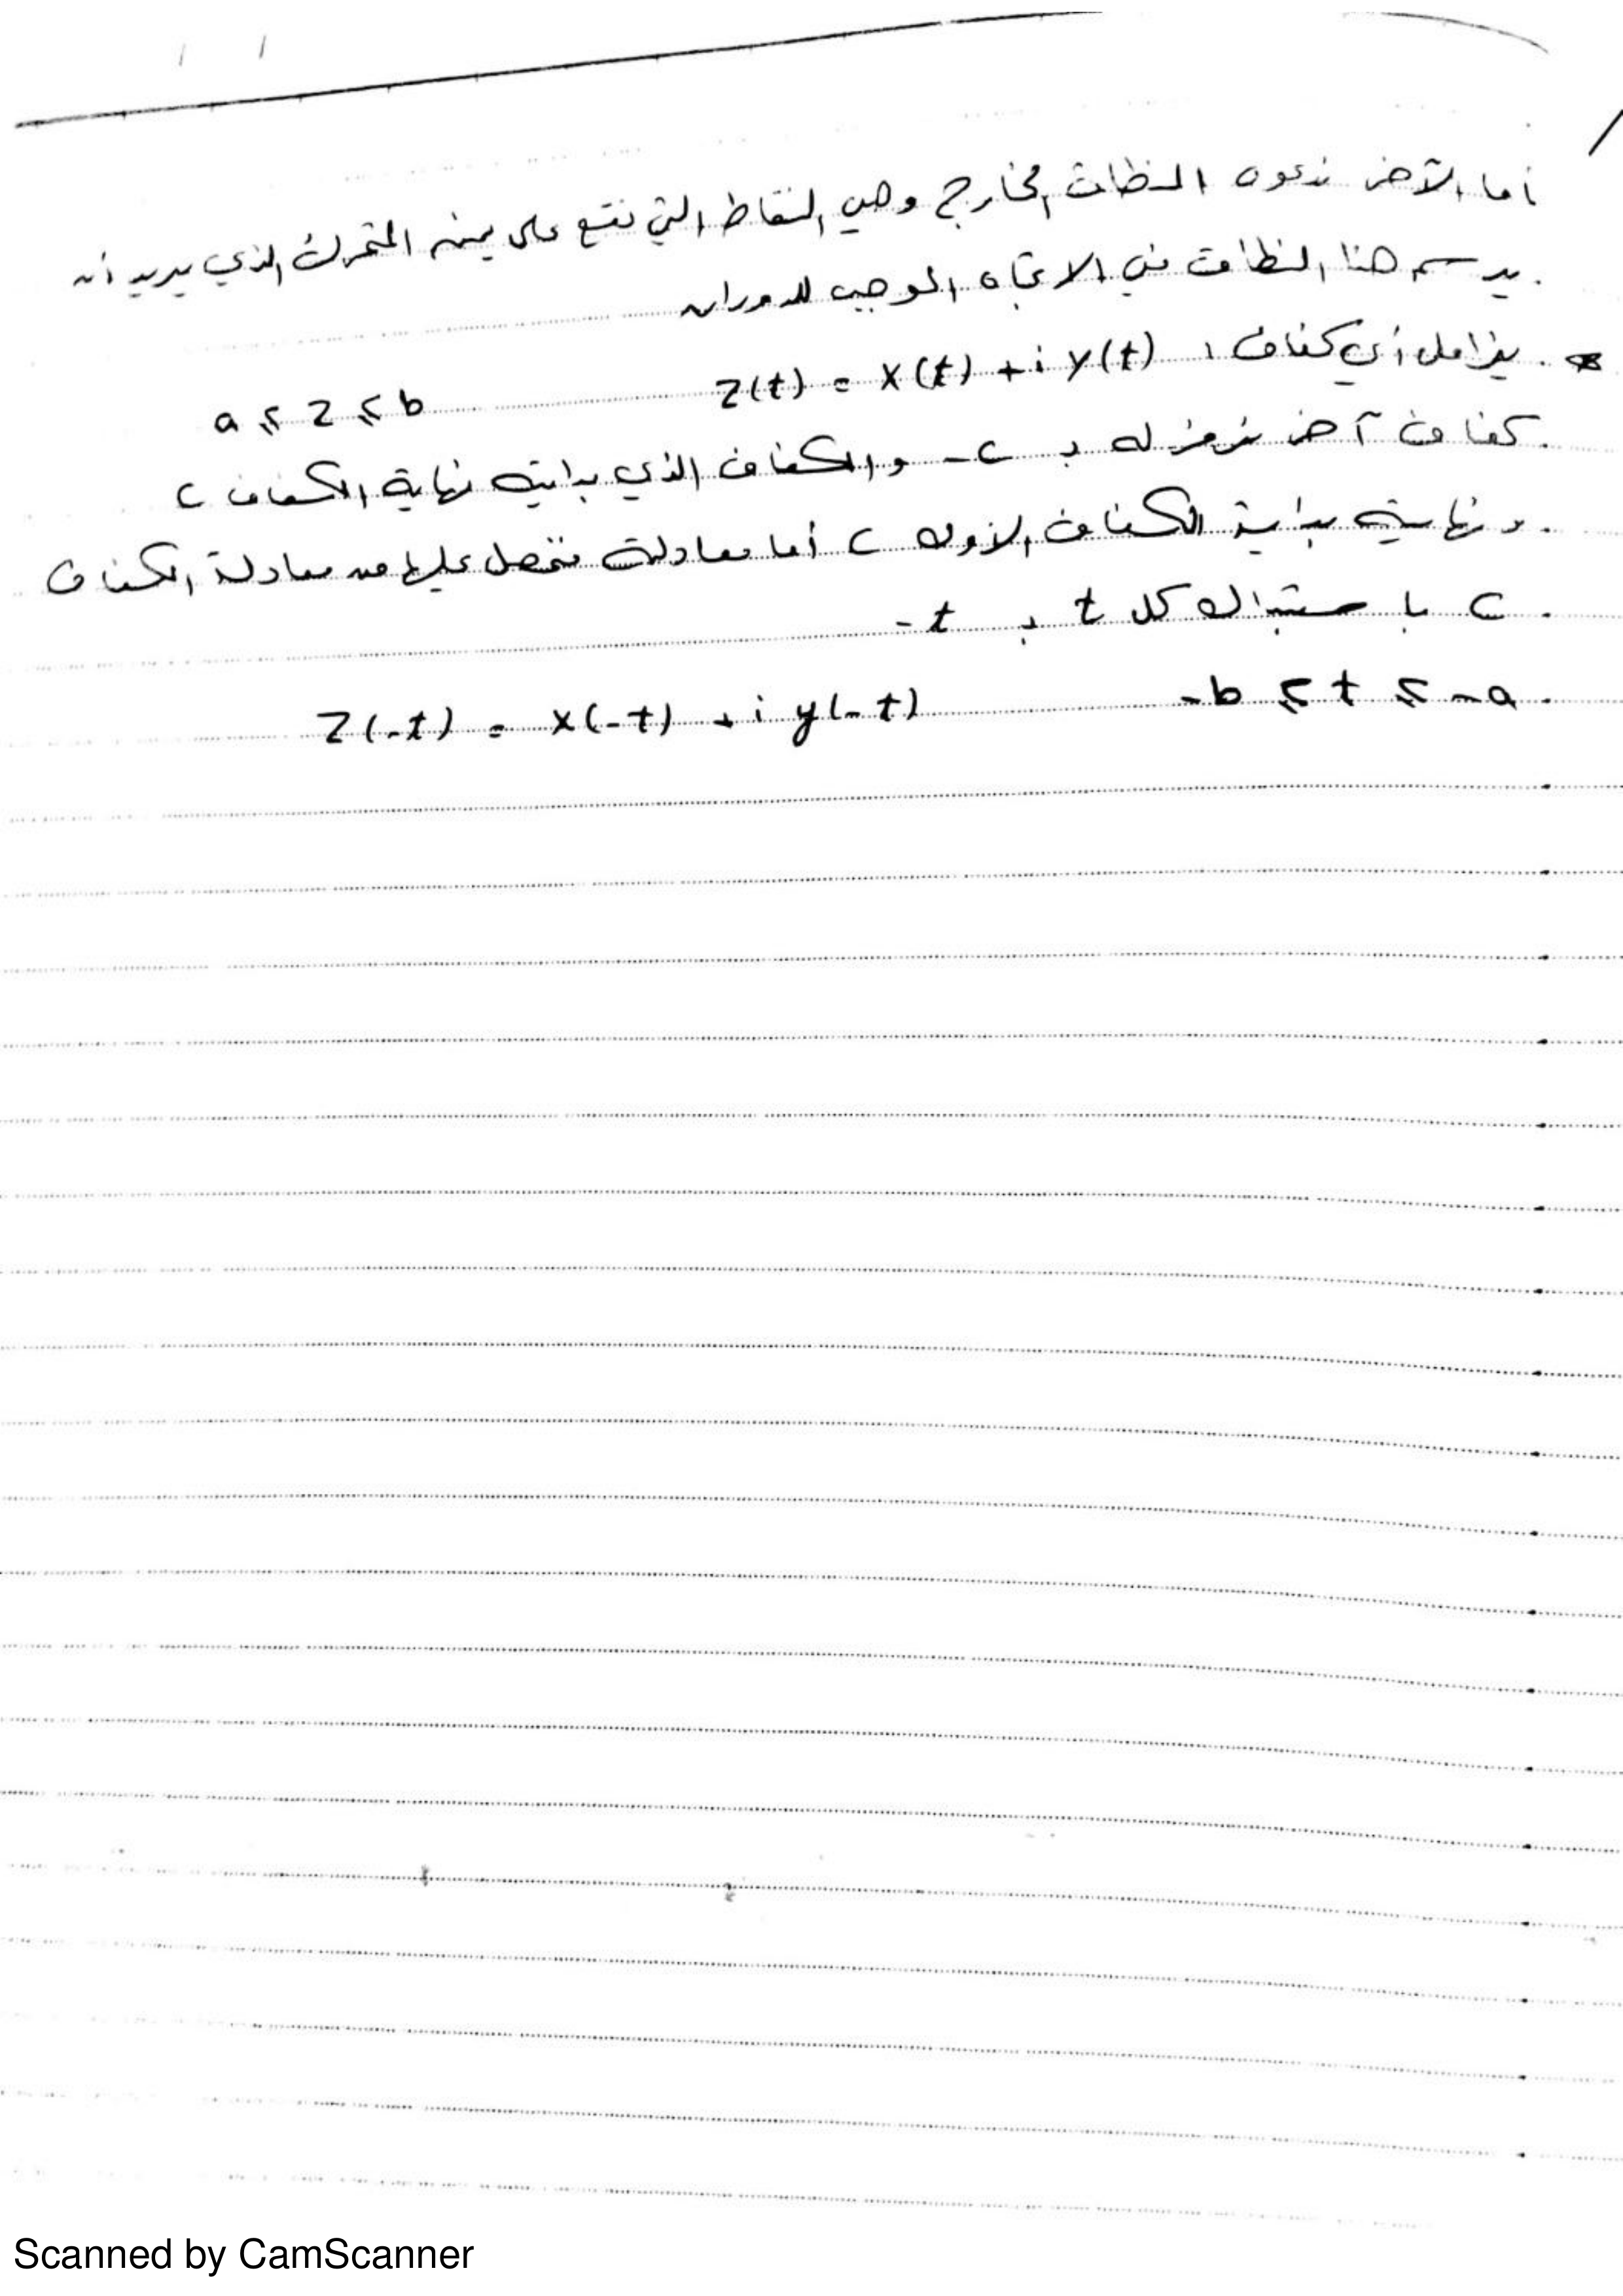 أما الآخر ندعوه النطاق الخارج وهي النقاط التي تقع على يمين المتحرك الذي يريد أن
يرسم هنا النطاق في الاتجاه الموجب للدوران
يزامل أي كفاف ، z(t) = x(t) + i y(t) a ⩽ z ⩽ b
كفاف آخر نرمز له بـ -c والكفاف الذي بدايته نهاية الكفاف c
ونهايته بداية الكفاف الأول c أما معادلته فنحصل عليها من معادلة الكفاف
c باستبدال كل t بـ -t
z(-t) = x(-t) + i y(-t) -b ⩽ t ⩽ -a
Scanned by CamScanner